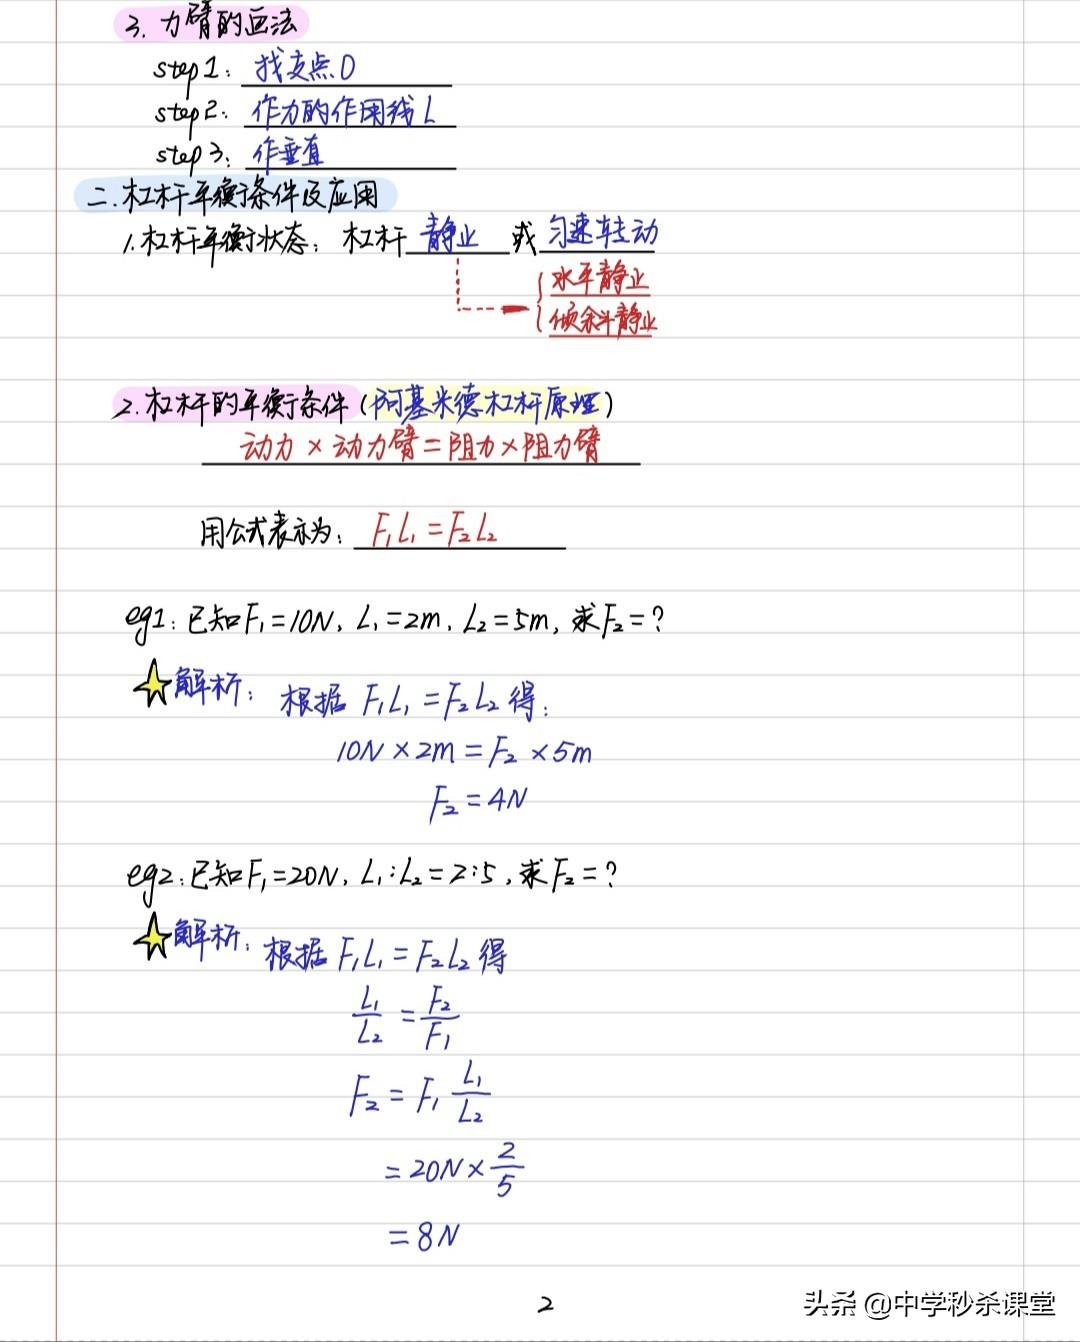 3. 力臂的画法
step1: 找支点O
step2: 作力的作用线L
step3: 作垂直
二.杠杆平衡条件及应用
1.杠杆平衡状态: 杠杆 静止 或 匀速转动
水平静止
倾斜静止
2.杠杆的平衡条件(阿基米德杠杆原理)
动力×动力臂=阻力×阻力臂
用公式表示为: F₁L₁=F₂L₂
eg1:已知F₁=10N, L₁=2m, L₂=5m, 求F₂=?
解析: 根据 F₁L₁=F₂L₂ 得:
10N×2m=F₂×5m
F₂=4N
eg2:已知F₁=20N, L₁:L₂=2:5, 求F₂=?
解析: 根据 F₁L₁=F₂L₂ 得
L₁/L₂=F₂/F₁
F₂=F₁ L₁/L₂
=20N×2/5
=8N
2
头条 @中学秒杀课堂